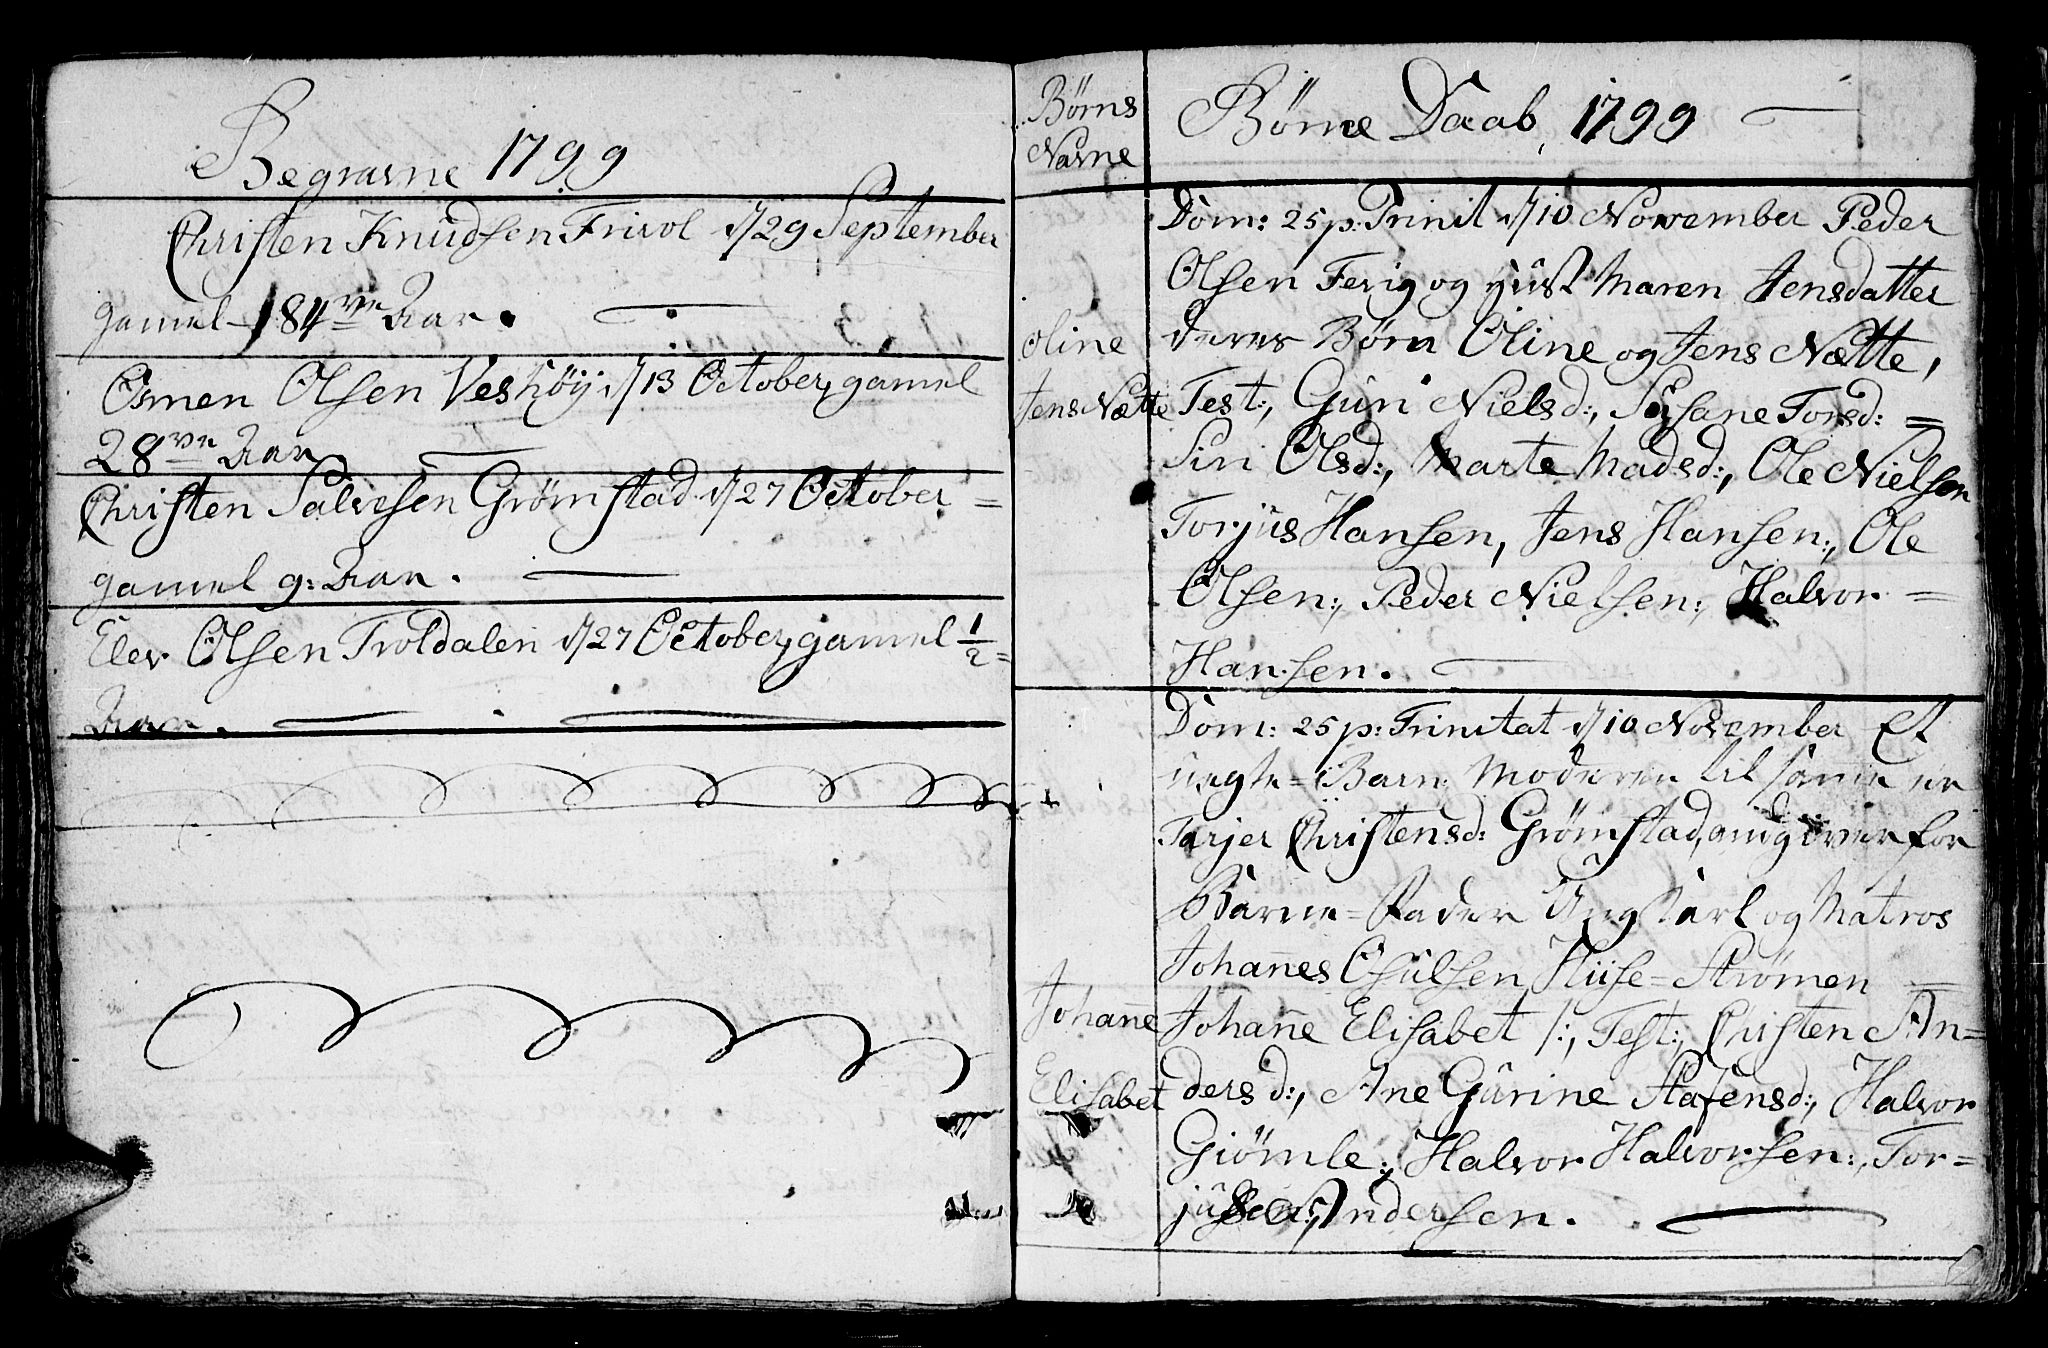 Begravne 1799
Christen Knudsen Frivol d/29 September
gamel 84 ve Aar.
Osmen Olsen Veshøÿ d/13 October, gamel
28 ve Aar
Christen Salvesen Grømstad d/27 October =
gamel 9: Aar.
Elev Olsen Troldalen d/27 October, gamel 1/2 =
Aar.
Børns
Navne
Børne Daab, 1799
Dom: 25 p: Trinit d/10 November Peder
Olsen Ferig og hust Maren Jensdatter
Oline
deres Børn Oline og Jens Nætte,
Jens Nætte
Test:, Guri Nielsd:, Susane Torsd: =
Siri Olsd:, Marte Madsd:, Ole Nielsen
Torjus Hansen, Jens Hansen:, Ole
Olsen:, Peder Nielsen:, Halvor =
Hansen.
Dom: 25 p: Trinitat d/10 November Et
uegte = Barn Moderen til same er
Tarjer Christensd: Grømstad, angiver for
Barne = Fader Ungkarl og Matros
Johañes Osulsen Huse = Strømen
Johañe
Johañe Elisabet /:, Test:, Christen An=
Elisabet
dersd:, Ane Gurine Stafensd:, Halvor
Giømle:, Halvor Halvorsen:, Tor=
jus Andersen.